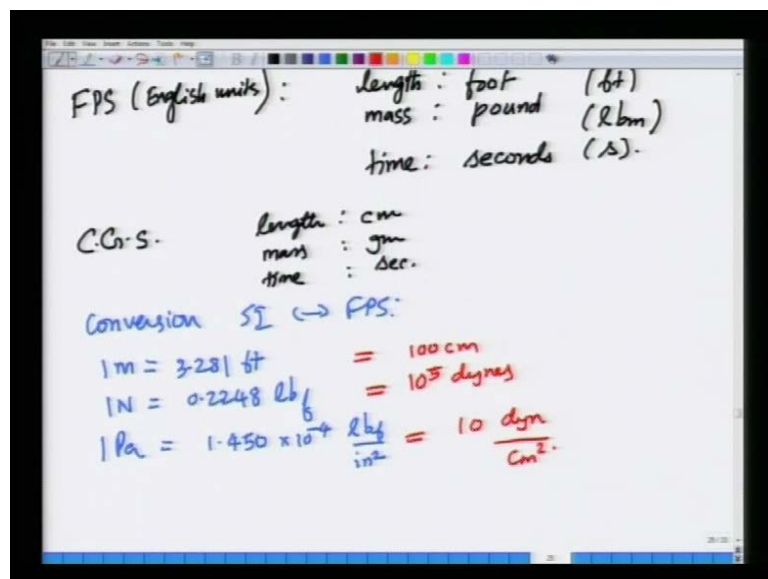 File Edit View Insert Actions Tools Help
FPS (English units) : length : foot (ft)
mass : pound (lbm)
time : seconds (s).
C.G.S. length : cm
mass : gm
time : sec.
Conversion SI ↔ FPS:
1 m = 3.281 ft = 100 cm
1 N = 0.2248 lbf = 10^5 dynes
1 Pa = 1.450 × 10^-4 lbf/in^2 = 10 dyn/cm^2.